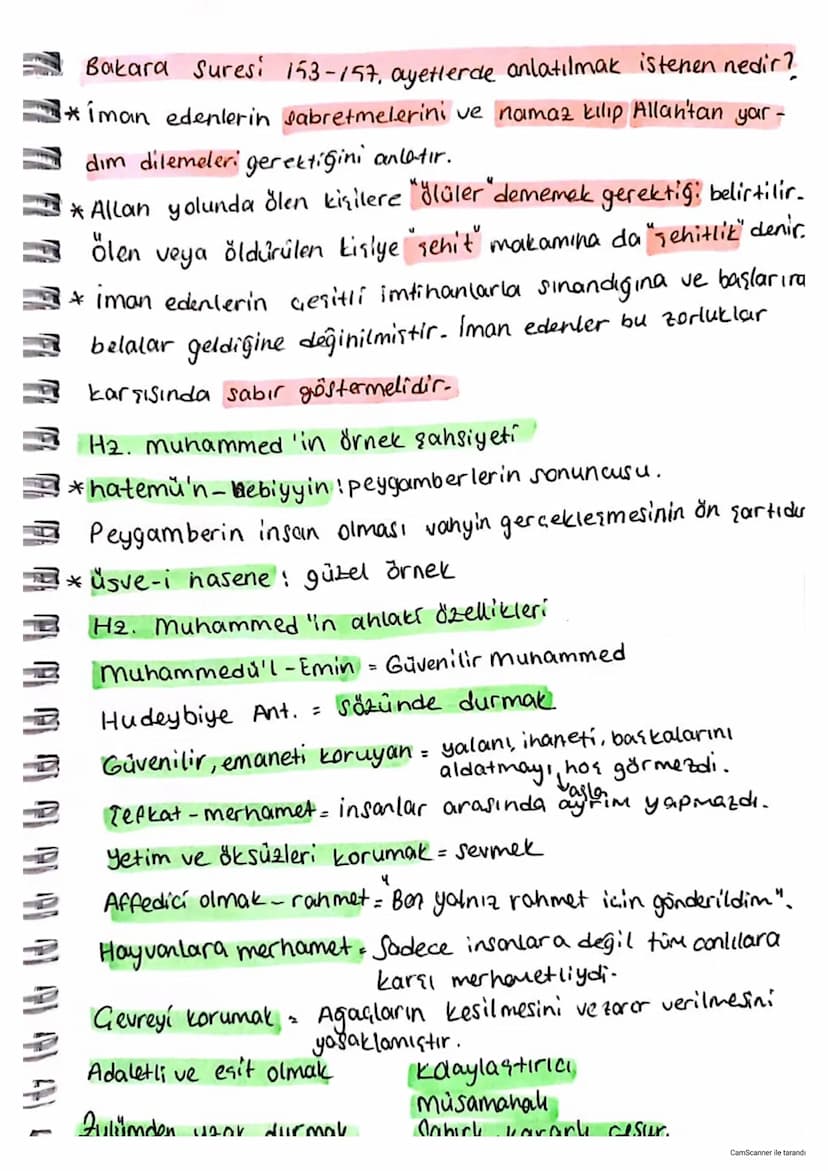 Bakara Suresi 153-157. ayetlerde anlatılmak istenen nedir?
* iman edenlerin sabretmelerini ve namaz kılıp Allah'tan yar-
dım dilemeleri gerektiğini anlatır.
* Allah yolunda ölen kişilere "ölüler" dememek gerektiği belirtilir.
ölen veya öldürülen kişiye "şehit" makamına da "şehitlik" denir.
* iman edenlerin çeşitli imtihanlarla sınandığına ve başlarına
belalar geldiğine değinilmiştir. İman edenler bu zorluklar
karşısında sabır göstermelidir.
Hz. muhammed'in örnek şahsiyeti
* hatemü'n-Nebiyyin: peygamberlerin sonuncusu.
Peygamberin insan olması vahyin gerçekleşmesinin ön şartıdır
* üsve-i hasene: güzel örnek
Hz. Muhammed'in ahlaki özellikleri
Muhammedü'l-Emin = Güvenilir Muhammed
Hudeybiye Ant. = sözünde durmak
Güvenilir, emaneti koruyan = yalanı, ihaneti, başkalarını
aldatmayı, hoş görmezdi.
Şefkat - merhamet = insanlar arasında ayrım yapmazdı.
Yetim ve öksüzleri korumak = sevmek
Affedici olmak - rahmet = "Ben yalnız rahmet için gönderildim".
Hayvanlara merhamet = Sadece insanlara değil tüm canlılara
karşı merhametliydi.
Çevreyi korumak = Ağaçların kesilmesini ve zarar verilmesini
yasaklamıştır.
Adaletli ve eşit olmak Kolaylaştırıcı,
müsamahalı
Zulümden uzak durmak Sabırlı, kararlı cesur.
CamScanner ile tarandı